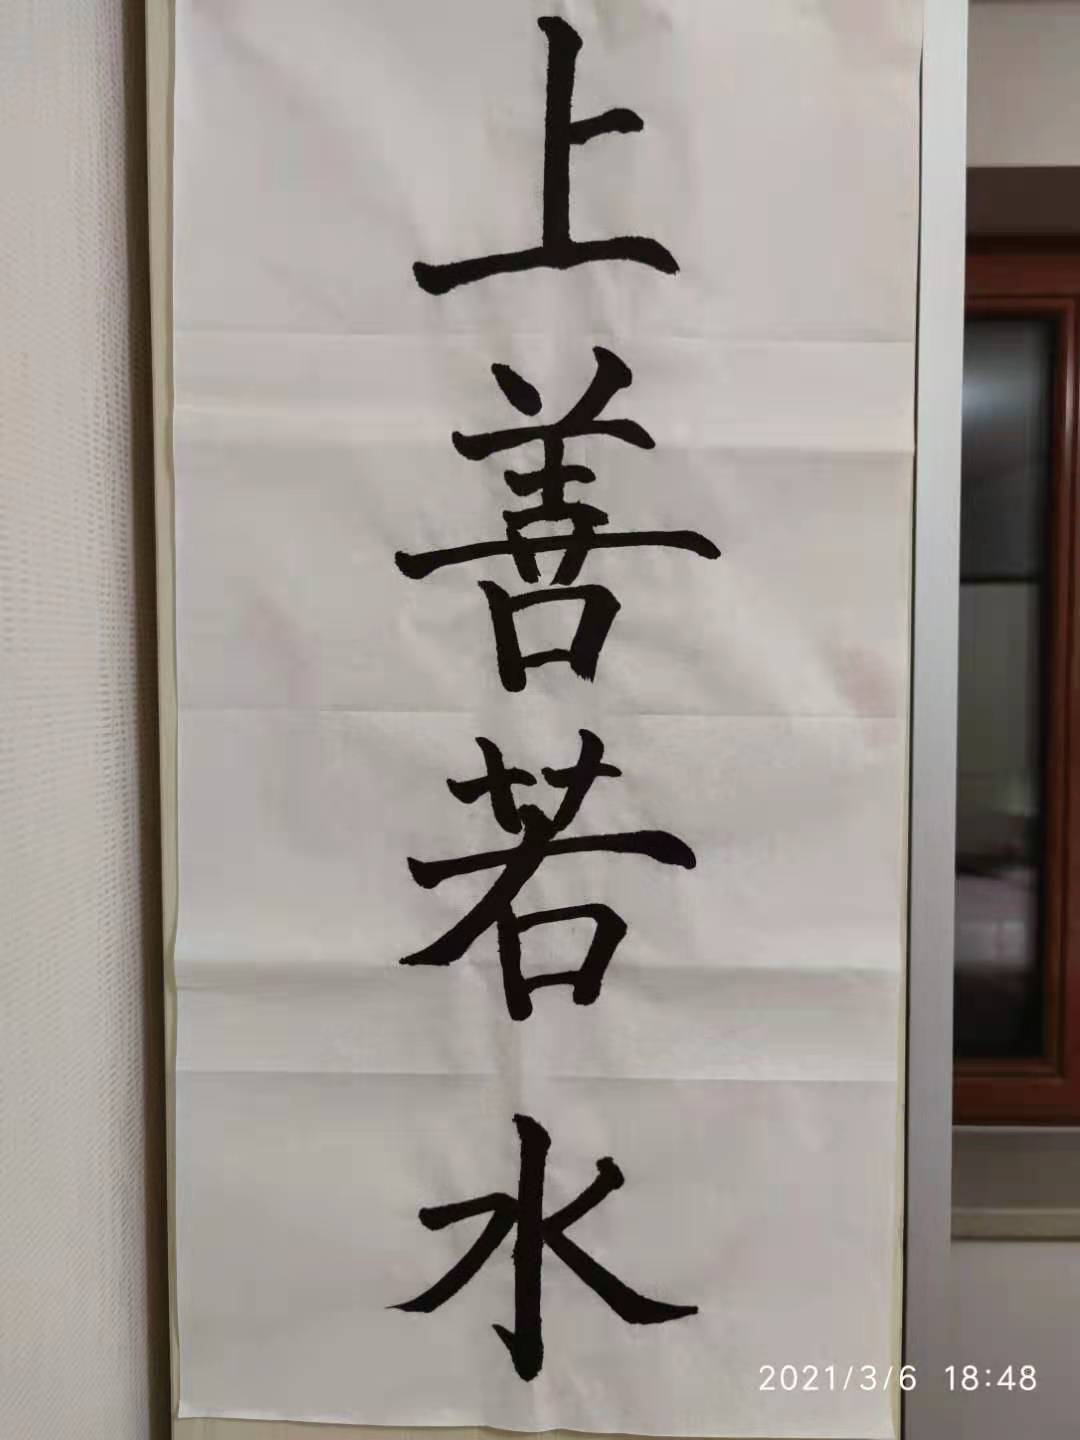 上善若水
2021/3/6 18:48